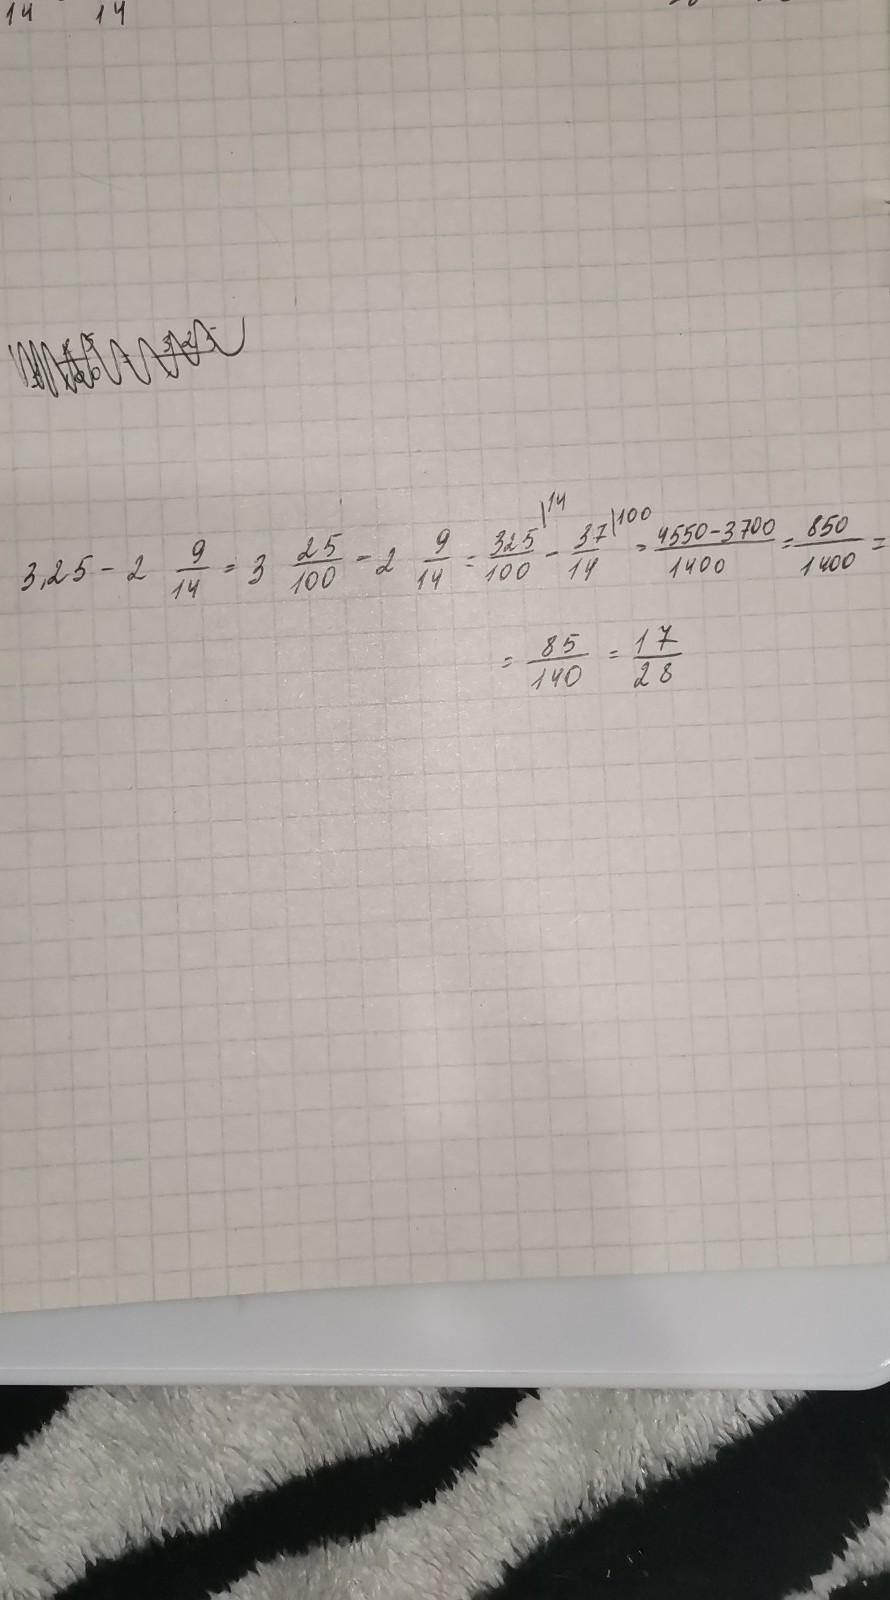 14 14
3,25 - 2 9/14 = 3 25/100 - 2 9/14 = 325/100 \14 - 37/14 \100 = 4550-3700/1400 = 850/1400 =
= 85/140 = 17/28